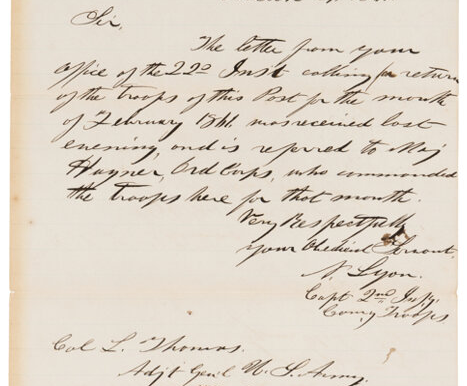 Sir,
The letter from your
office of the 22d Inst calling for return
of the troops of this Post for the month
of February 1861. was received last
evening, and is referred to Maj
Hagner, Ord Corps, who commanded
the troops here for that month.
Very Respectfully
your Obedient Servant,
N. Lyon.
Capt 2nd Infy.
Comg Troops
Col L. Thomas.
Adjt Genl U. S. Army.